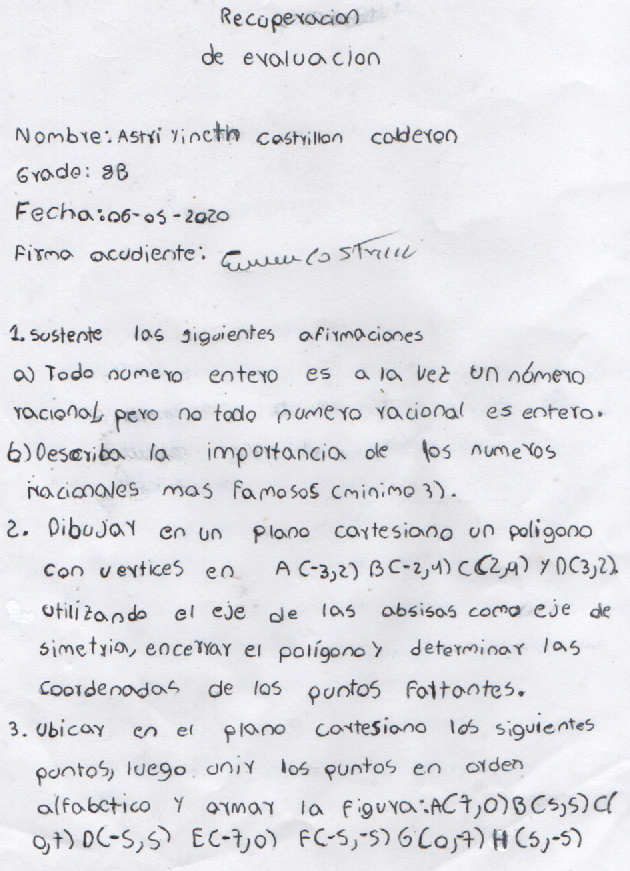 Recuperacion
de evaluacion
Nombre: Astri Yineth Castrillon calderon
Grado: 8B
Fecha: 06-05-2020
Firma acudiente:
1. Sustente las siguientes afirmaciones
a) Todo numero entero es a la vez un número
racional, pero no todo numero racional es entero.
b) Describa la importancia de los numeros
irracionales mas famosos (minimo 3).
2. Dibujar en un plano cartesiano un poligono
con vertices en A (-3,2) B (-2,4) C (2,4) y D(3,2)
utilizando el eje de las absisas como eje de
simetria, encerrar el polígono y determinar las
coordenadas de los puntos faltantes.
3. Ubicar en el plano cartesiano los siguientes
puntos, luego unir los puntos en orden
alfabetico y armar la figura: A(7,0) B(5,5) C(
0,7) D(-5,5) E(-7,0) F(-5,-5) G(0,-7) H (5,-5)